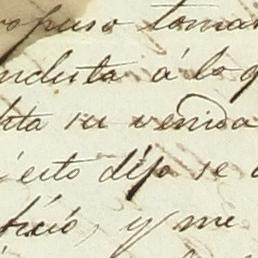 opuso toma
nducta á la q
ta su venida
esto dijo se
tició, y me